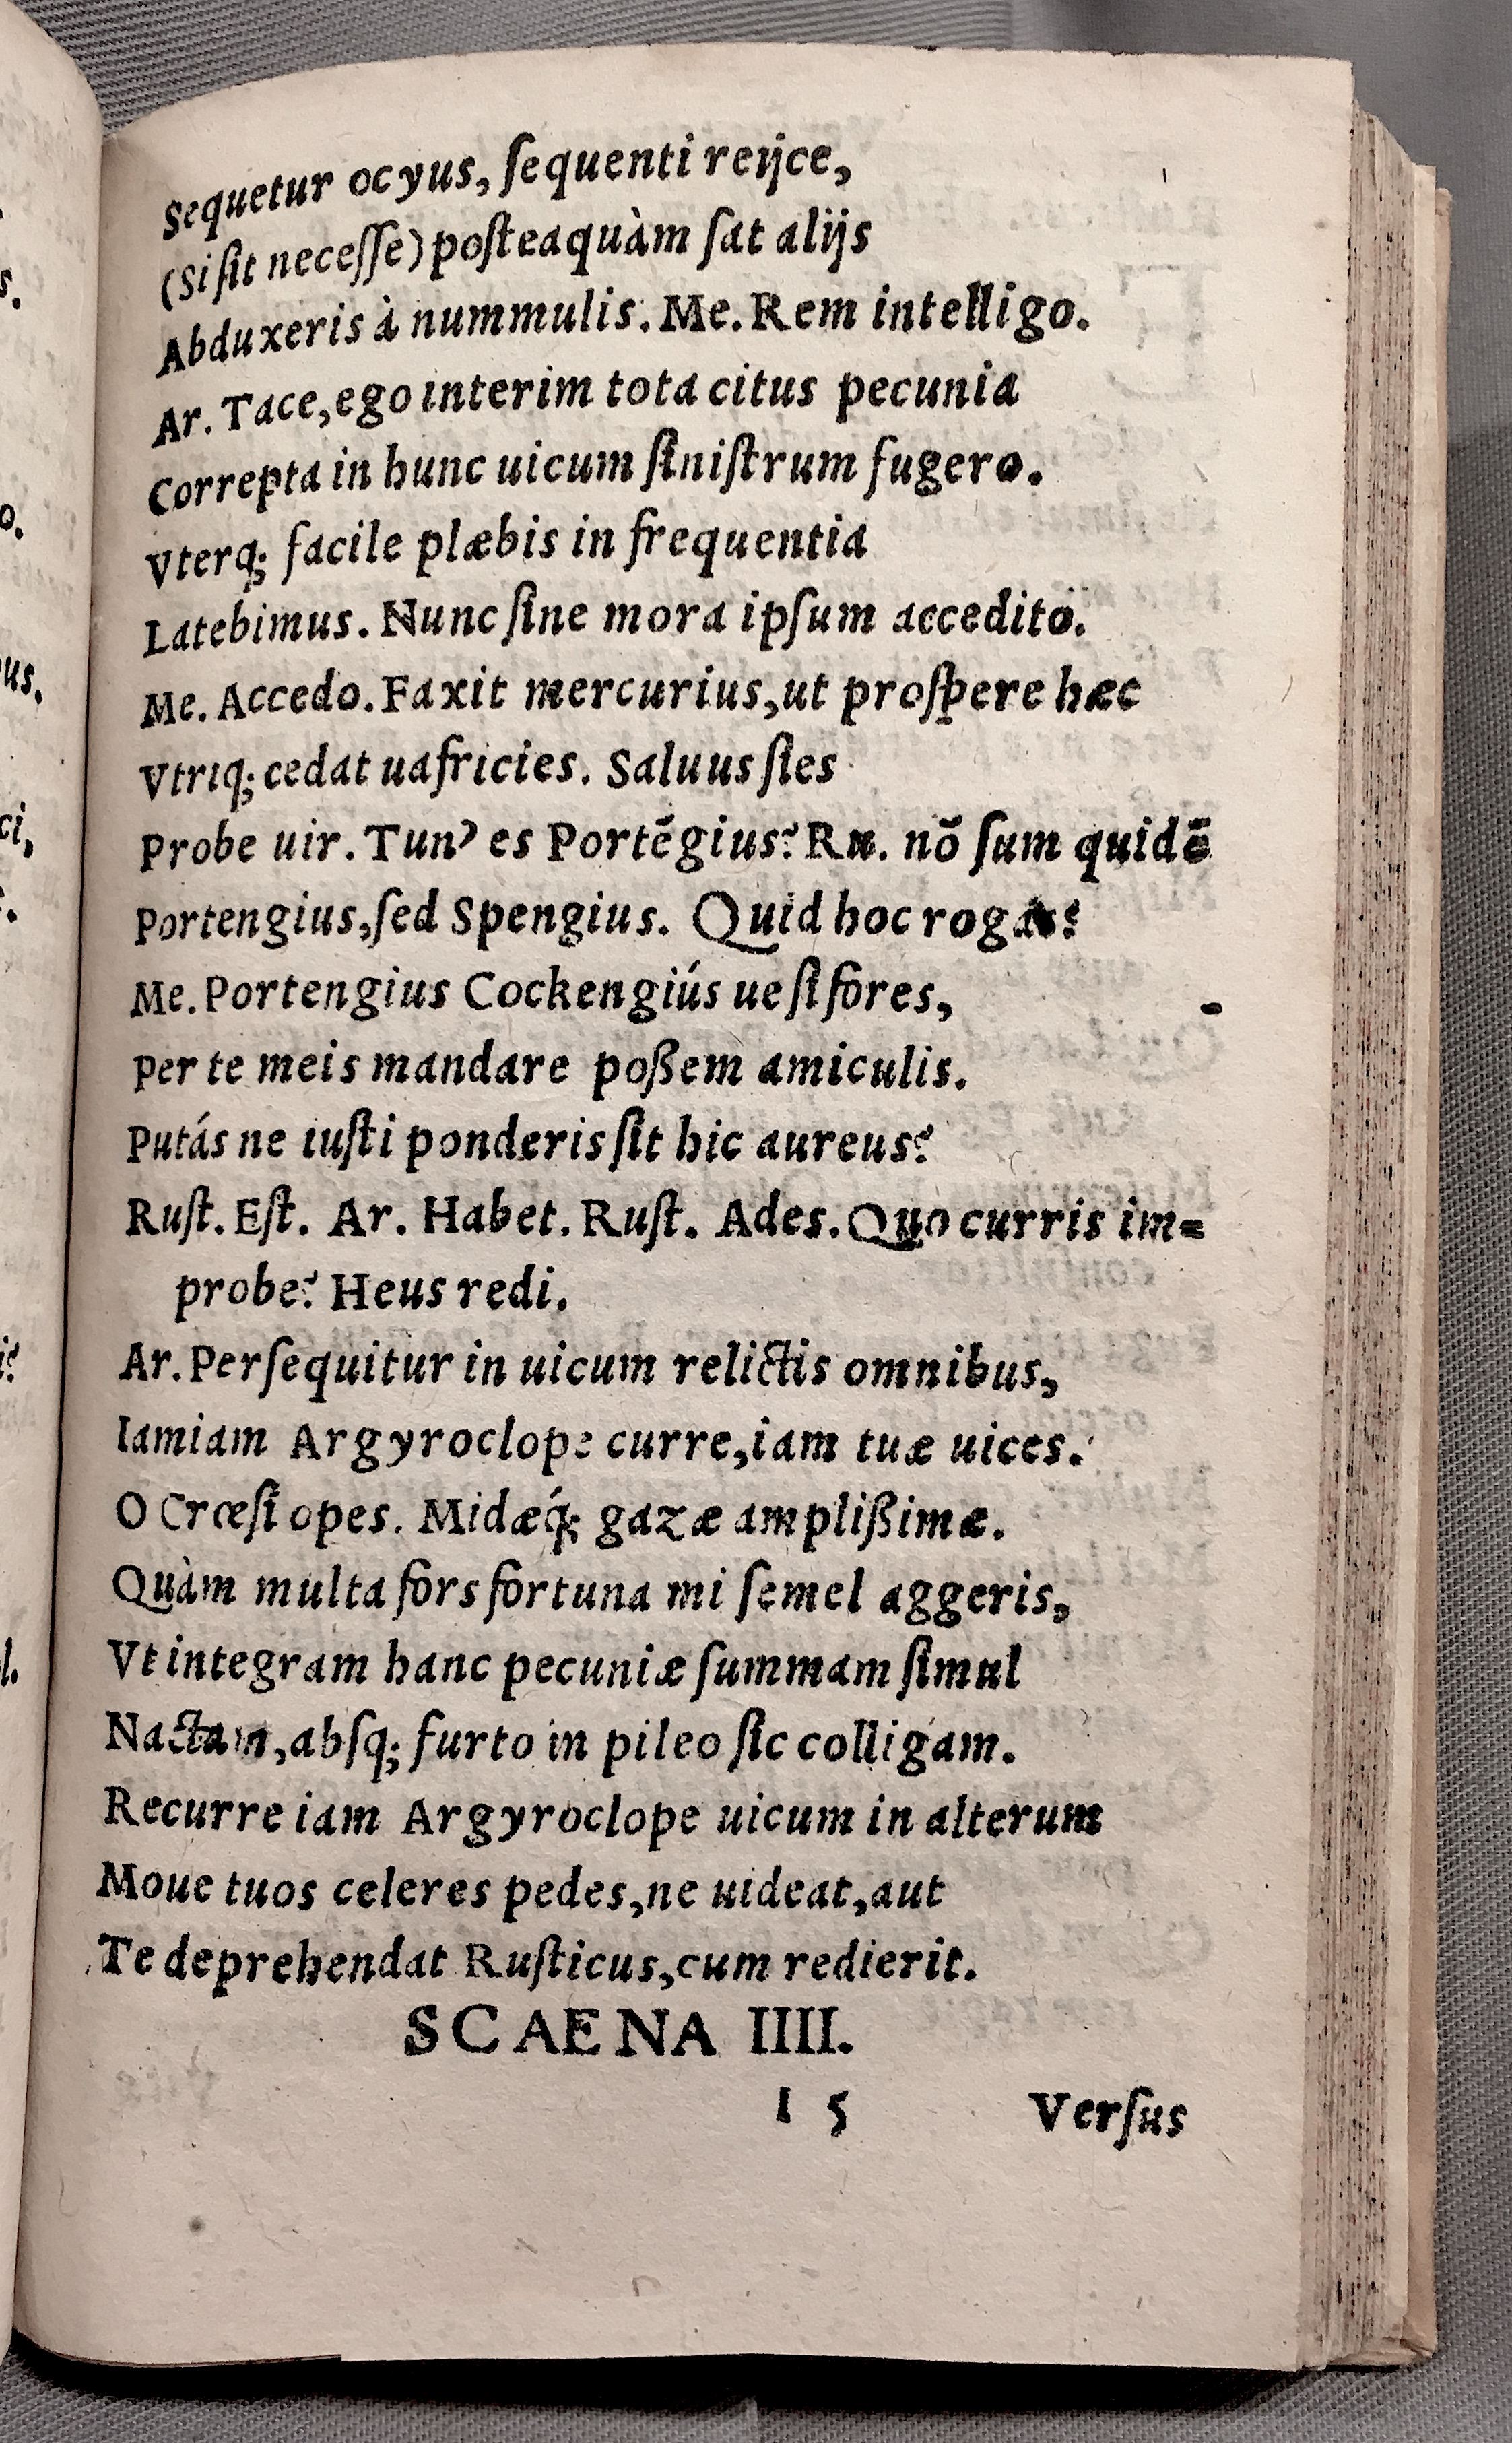 Sequetur ocyus, ſequenti reijce,
(Si ſit neceſſe) poſteaquàm ſat alijs
Abduxeris à nummulis. Me. Rem intelligo.
Ar. Tace, ego interim tota citus pecunia
Correpta in hunc uicum ſiniſtrum fugero.
Vterq; facile plæbis in frequentia
Latebimus. Nunc ſine mora ipſum accedito.
Me. Accedo. Faxit mercurius, ut proſpere hæc
Vtriq; cedat uafricies. Saluus ſies
Probe uir. Tun' es Portẽgius? Ru. nõ ſum quidẽ
Portengius, ſed Spengius. Quid hoc rogas?
Me. Portengius Cockengiús ue ſi fores,
Per te meis mandare poßem amiculis.
Putás ne iuſti ponderis ſit hic aureus?
Ruſt. Eſt. Ar. Habet. Ruſt. Ades. Quo curris im=
probe? Heus redi.
Ar. Perſequitur in uicum relictis omnibus,
Iamiam Argyroclope curre, iam tuæ uices.
O Crœſi opes. Midæq́; gazæ amplißimæ.
Quàm multa fors fortuna mi ſemel aggeris,
Vt integram hanc pecuniæ ſummam ſimul
Nactam, abſq; furto in pileo ſic colligam.
Recurre iam Argyroclope uicum in alterum
Moue tuos celeres pedes, ne uideat, aut
Te deprehendat Ruſticus, cum redierit.
SCAENA IIII.
I 5 Verſus